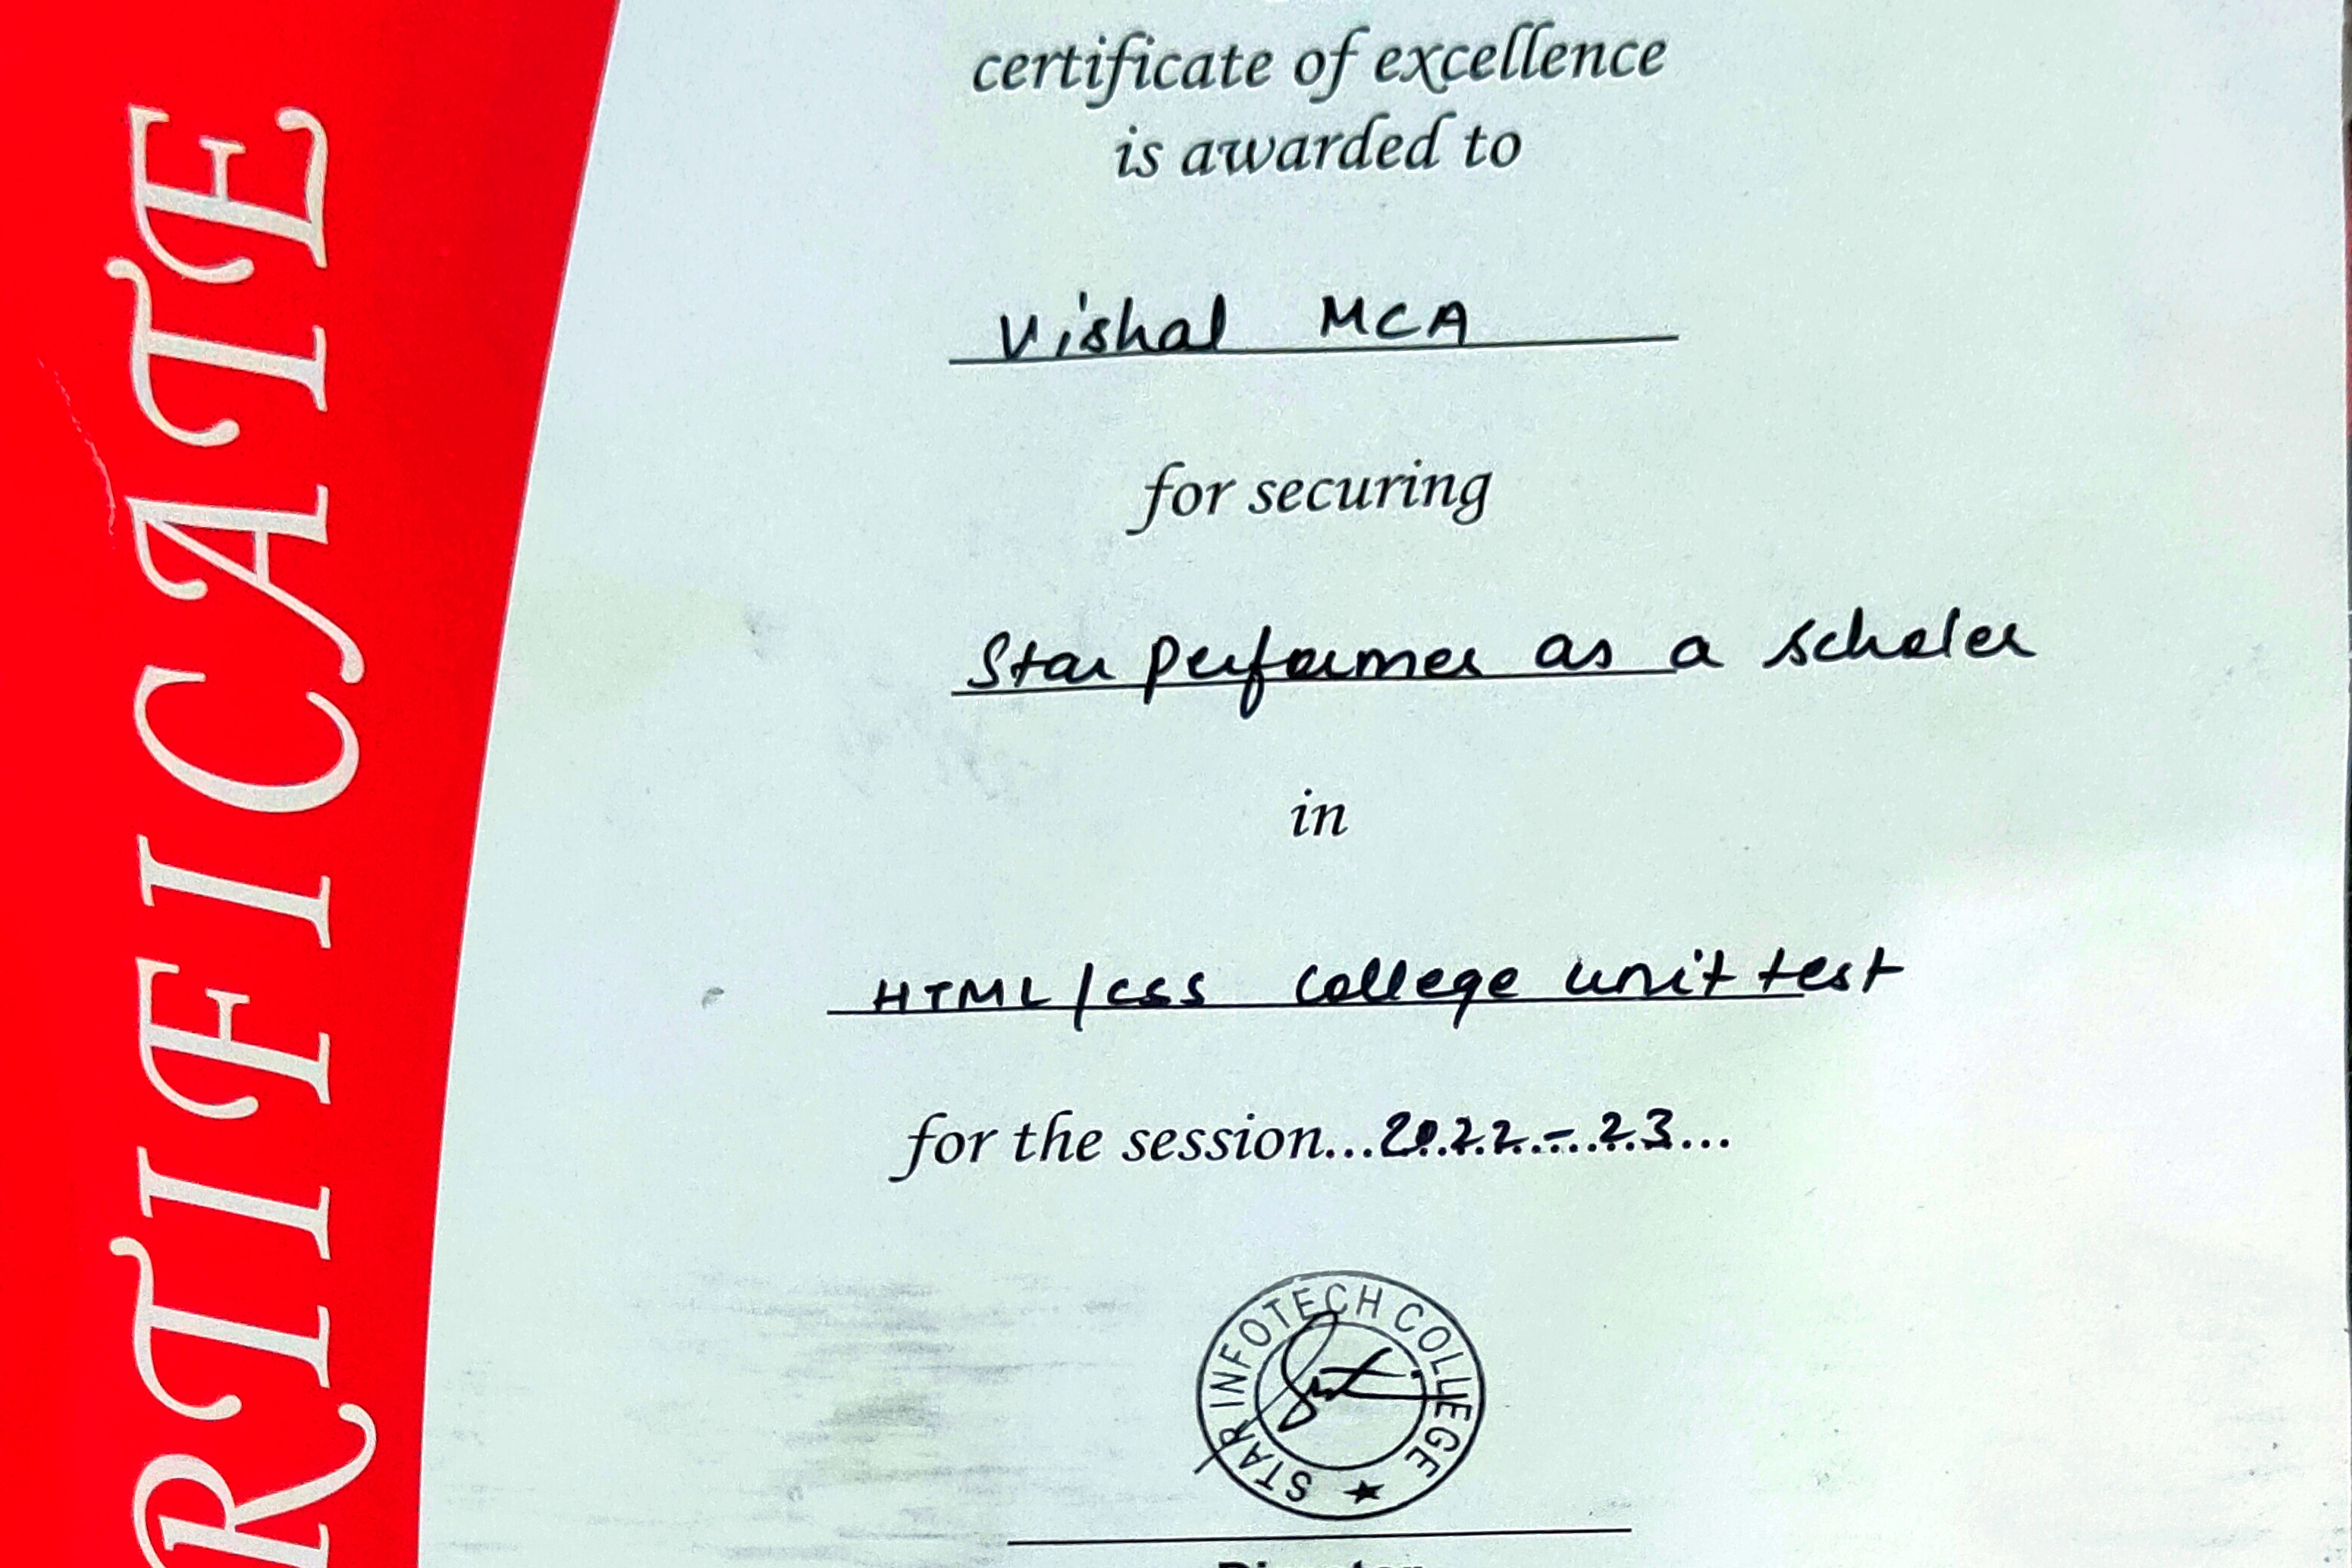 certificate of excellence
is awarded to
Vishal MCA
for securing
Star performer as a scholer
in
HTML/CSS College unit test
for the session...2022-23...
STAR INFOTECH COLLEGE ★
RTIFICATE